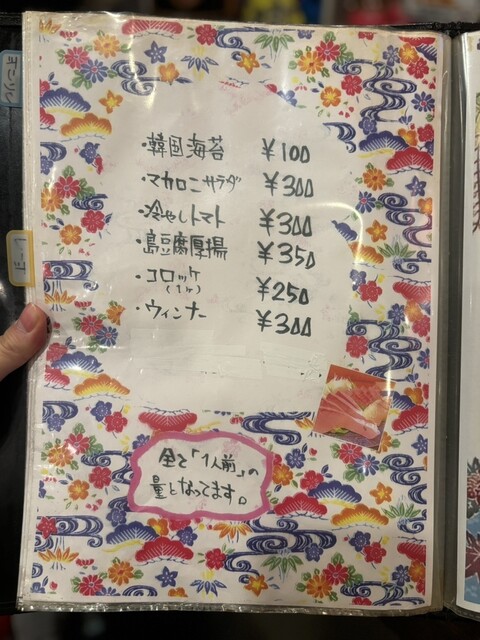 ・韓国海苔 ¥100
・マカロニサラダ ¥300
・冷やしトマト ¥300
・島豆腐厚揚 ¥350
・コロッケ ¥250
(1ヶ)
・ウィンナー ¥300
全て「1人前」の
量となってます。